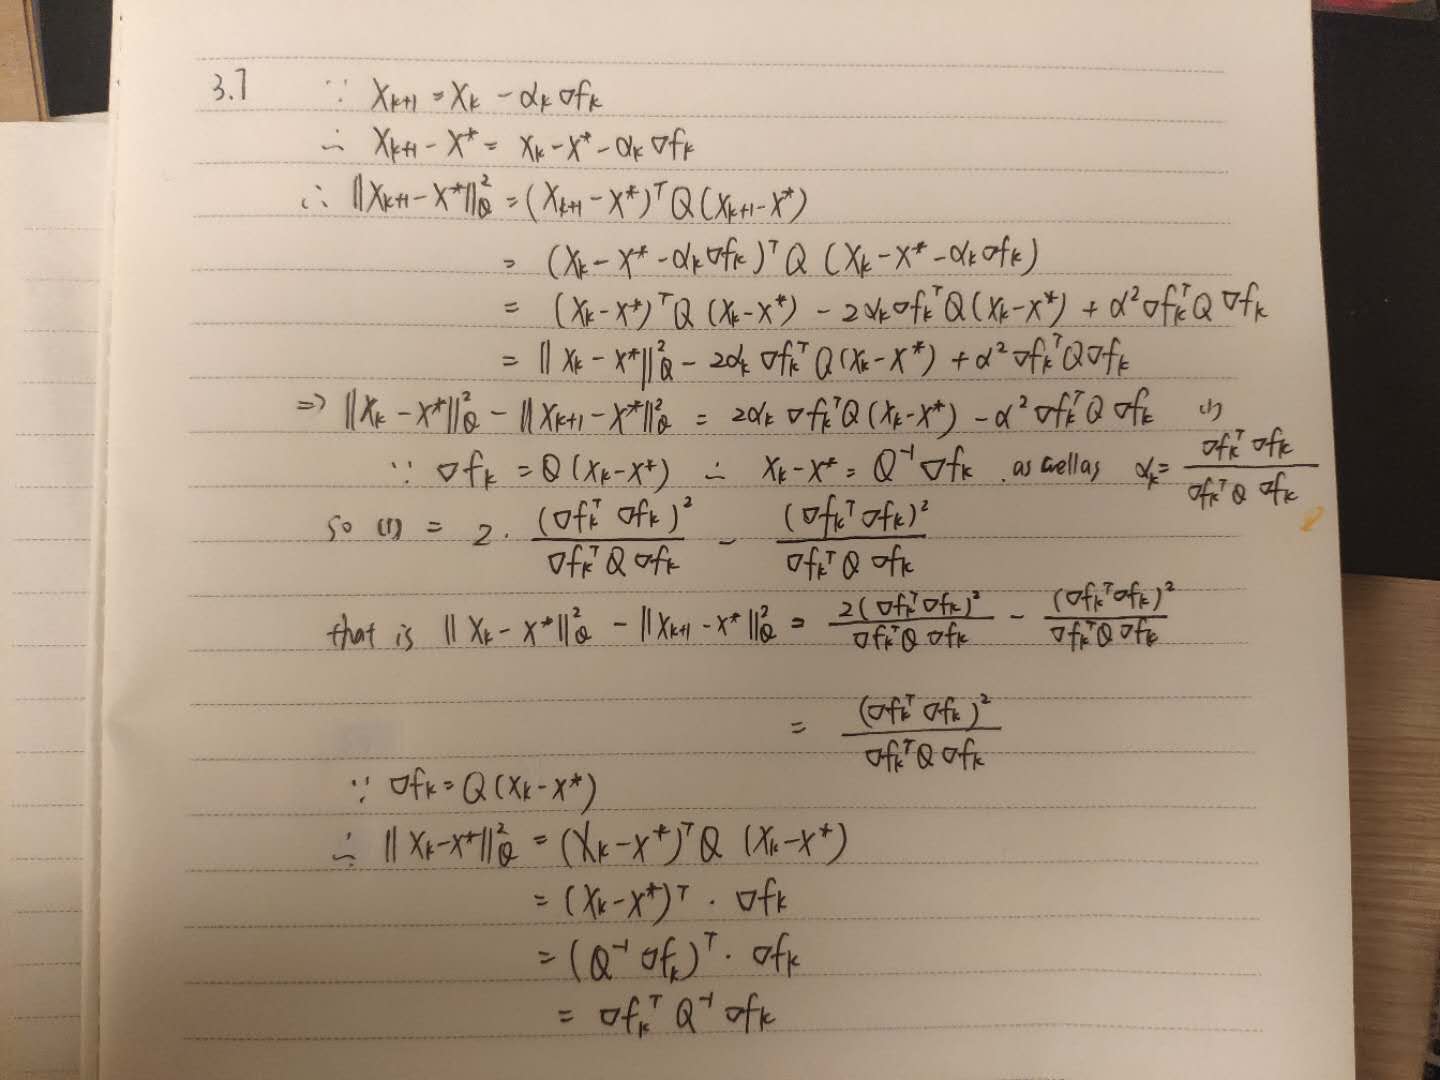 3.7 ∵ X_{k+1} = X_k - α_k ∇f_k
∴ X_{k+1} - X* = X_k - X* - α_k ∇f_k
∴ ‖X_{k+1} - X*‖²_Q = (X_{k+1} - X*)ᵀ Q (X_{k+1} - X*)
= (X_k - X* - α_k ∇f_k)ᵀ Q (X_k - X* - α_k ∇f_k)
= (X_k - X*)ᵀ Q (X_k - X*) - 2α_k ∇f_kᵀ Q (X_k - X*) + α² ∇f_kᵀ Q ∇f_k
= ‖X_k - X*‖²_Q - 2α_k ∇f_kᵀ Q (X_k - X*) + α² ∇f_kᵀ Q ∇f_k
⇒ ‖X_k - X*‖²_Q - ‖X_{k+1} - X*‖²_Q = 2α_k ∇f_kᵀ Q (X_k - X*) - α² ∇f_kᵀ Q ∇f_k (1)
∵ ∇f_k = Q (X_k - X*) ∴ X_k - X* = Q⁻¹ ∇f_k . as well as α_k = \frac{∇f_kᵀ ∇f_k}{∇f_kᵀ Q ∇f_k}
so (1) = 2 · \frac{(∇f_kᵀ ∇f_k)²}{∇f_kᵀ Q ∇f_k} - \frac{(∇f_kᵀ ∇f_k)²}{∇f_kᵀ Q ∇f_k}
that is ‖X_k - X*‖²_Q - ‖X_{k+1} - X*‖²_Q = \frac{2(∇f_kᵀ ∇f_k)²}{∇f_kᵀ Q ∇f_k} - \frac{(∇f_kᵀ ∇f_k)²}{∇f_kᵀ Q ∇f_k}
= \frac{(∇f_kᵀ ∇f_k)²}{∇f_kᵀ Q ∇f_k}
∵ ∇f_k = Q (X_k - X*)
∴ ‖X_k - X*‖²_Q = (X_k - X*)ᵀ Q (X_k - X*)
= (X_k - X*)ᵀ · ∇f_k
= (Q⁻¹ ∇f_k)ᵀ · ∇f_k
= ∇f_kᵀ Q⁻¹ ∇f_k